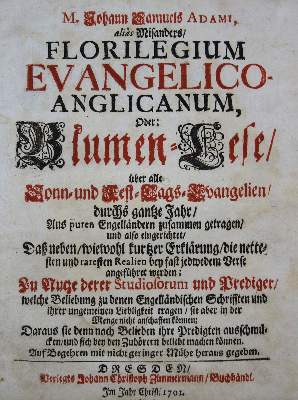 M. Johann Samuels ADAMI,
aliàs Misanders/
FLORILEGIUM
EVANGELICO-
ANGLICANUM,
Oder:
Blumen-Lese/
über alle
Sonn-und Fest-Tags-Evangelien/
durchs gantze Jahr/
Aus puren Engelländern zusammen getragen/
und also eingerichtet/
Daß neben/wiewohl kurtzer Erklärung/die nette-
sten und raresten Realien bey fast jedwedem Verse
angeführet werden;
Zu Nutze derer Studiosorum und Prediger/
welche Beliebung zu denen Engelländischen Schrifften und
ihrer ungemeinen Liebligkeit tragen/ sie aber in der
Menge nicht anschaffen können;
Daraus sie denn nach Belieben ihre Predigten ausschmü-
cken/und sich bey den Zuhörern beliebt machen können.
Auf Begehren mit nicht geringer Mühe heraus gegeben.
DRESDEN/
Verlegts Johann Christoph Zimmermann/ Buchhändl.
Im Jahr Christi/ 1701.